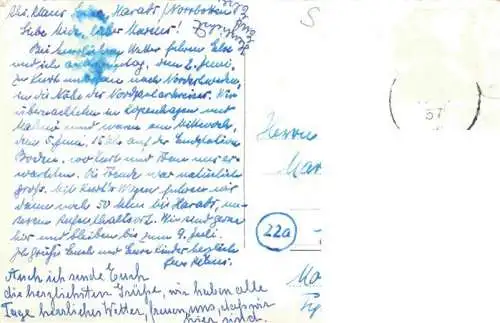 Abs. Klaus Harads / Norrbotten
Liebe Mide, lieber Markus!
Bei herrlichem Wetter fuhren Else
und ich am Sonntag, dem 2. Juni,
zu Kurt und nach Nordschweden,
in die Nähe des Nordpolarkreises. Wir
übernachteten in Kopenhagen und
Malmö und waren am Mittwoch,
dem 5. Juni, auf der Endstation
Boden, wo Kurt und uns er-
warteten. Die Freude war natürlich
groß. Mit Kurt's Wagen fuhren wir
dann noch 50 km bis Harads, un-
serem Aufenthaltsort. Wir sind gerne
hier und bleiben bis zum 9. Juli.
Ich grüße Euch und Eure Kinder herzlich
Euer Klaus.
Auch ich sende Euch
die herzlichsten Grüße, wir haben alle
Tage herrliches Wetter, freuen uns, daß wir
hier sind.
S
57
Herrn
Mar
22a